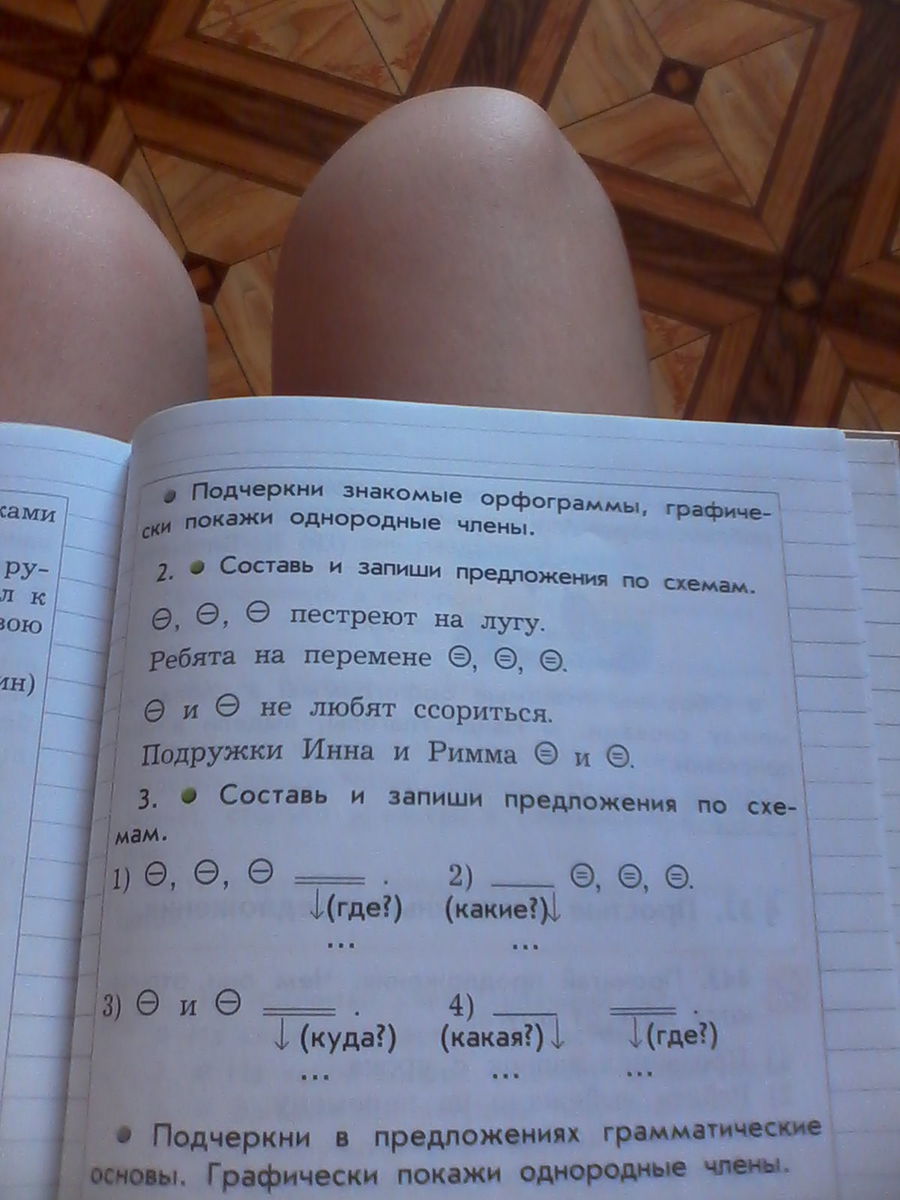 ками
ру-
л к
вою
ин)
• Подчеркни знакомые орфограммы, графиче-
ски покажи однородные члены.
2. • Составь и запиши предложения по схемам.
⊖, ⊖, ⊖ пестреют на лугу.
Ребята на перемене ⊜, ⊜, ⊜.
⊖ и ⊖ не любят ссориться.
Подружки Инна и Римма ⊜ и ⊜.
3. • Составь и запиши предложения по схе-
мам.
1) ⊖, ⊖, ⊖ ═══. 2) ___ ⊜, ⊜, ⊜.
↓(где?) (какие?)↓
... ...
3) ⊖ и ⊖ ═══. 4) ___ ═══.
↓(куда?) (какая?)↓ ↓(где?)
... ... ...
• Подчеркни в предложениях грамматические
основы. Графически покажи однородные члены.